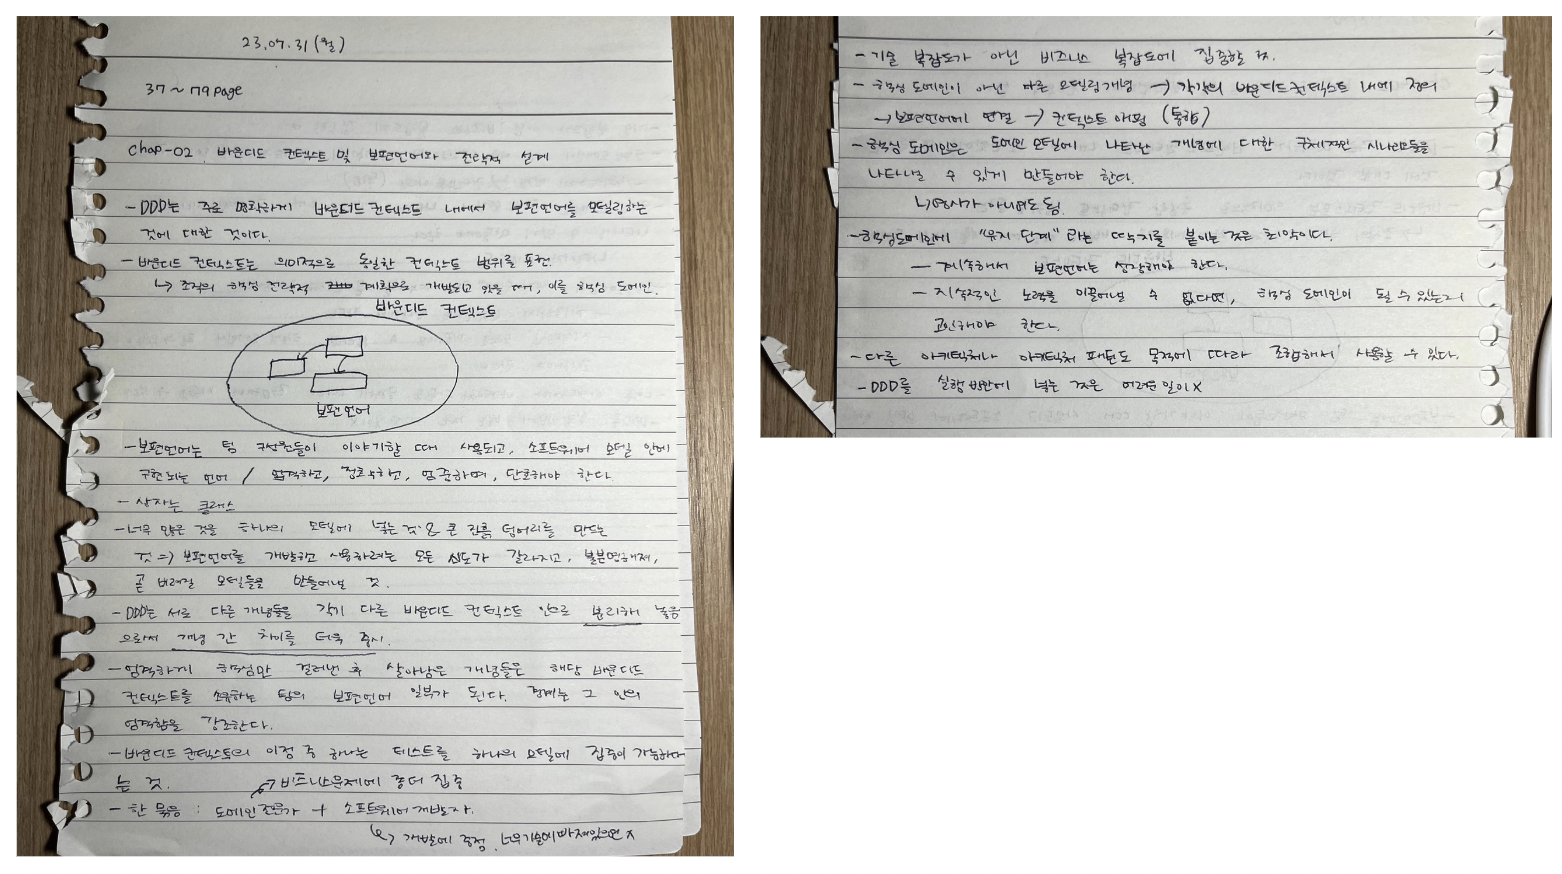 23.07.31 (월)
37 ~ 79 page
Chap-02. 바운디드 컨텍스트 및 보편언어와 전략적 설계
- DDD는 주로 명확하게 바운디드 컨텍스트 내에서 보편언어를 모델링하는
것에 대한 것이다.
- 바운디드 컨텍스트는 의미적으로 동일한 컨텍스트 범위를 표현.
↳ 조직의 핵심 전략적 계획으로 개발되고 있을 때, 이를 핵심 도메인.
바운디드 컨텍스트
보편언어
- 보편언어는 팀 구성원들이 이야기할 때 사용되고, 소프트웨어 모델 안에
구현되는 언어 / 엄격하고, 정확하고, 엄중하며, 단호해야 한다.
- 상자는 클래스
- 너무 많은 것을 하나의 모델에 넣는 것 & 큰 진흙 덩어리를 만드는
것 => 보편언어를 개발하고 사용하려는 모든 시도가 갈라지고, 불분명해져,
곧 버려질 모델들을 만들어낼 것.
- DDD는 서로 다른 개념들을 각기 다른 바운디드 컨텍스트 안으로 분리해 놓음
으로써 개념 간 차이를 더욱 중시.
- 엄격하게 핵심만 걸러낸 후 살아남은 개념들은 해당 바운디드
컨텍스트를 소유하는 팀의 보편언어 일부가 된다. 경계는 그 안의
엄격함을 강조한다.
- 바운디드 컨텍스트의 이점 중 하나는 테스트를 하나의 모델에 집중이 가능하다
는 것.
→ 비즈니스문제에 좀더 집중
- 한 묶음 : 도메인 전문가 + 소프트웨어 개발자.
↳ 개발에 중점. 너무 기술에 빠져있으면 X
- 기술 복잡도가 아닌 비즈니스 복잡도에 집중할 것.
- 핵심 도메인이 아닌 다른 모델링개념 → 각각의 바운디드 컨텍스트 내에 정의
→ 보편언어에 연결 → 컨텍스트 매핑 (통합)
- 핵심 도메인은 도메인 모델에 나타난 개념에 대한 구체적인 시나리오들을
나타나낼 수 있게 만들어야 한다.
↳ 명사가 아니어도 됨.
- 핵심도메인에 "유지 단계" 라는 딱지를 붙이는 것은 최악이다.
- 계속해서 보편언어는 성장해야 한다.
- 지속적인 노력을 이끌어낼 수 없다면, 핵심 도메인이 될 수 있는지
고민해야 한다.
- 다른 아키텍처나 아키텍처 패턴도 목적에 따라 조합해서 사용할 수 있다.
- DDD를 실행 방안에 넣는 것은 어려운 일이 X